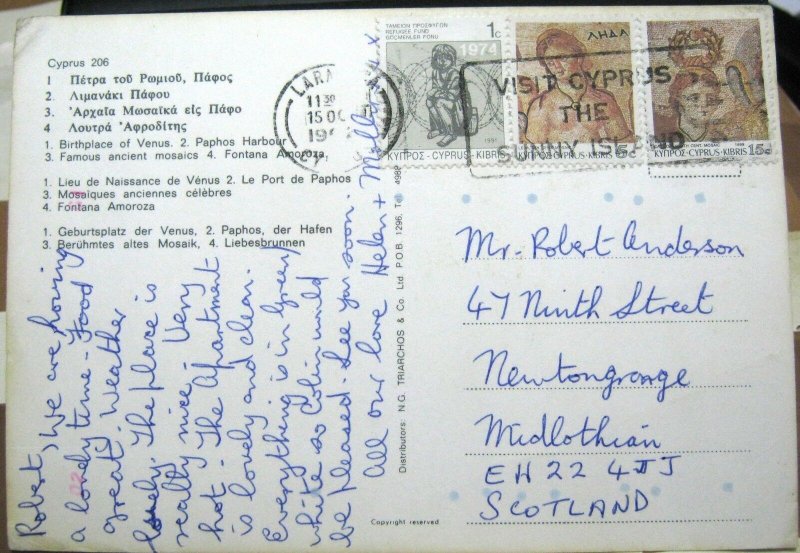 Cyprus 206
1 Πέτρα τοῦ Ρωμιοῦ, Πάφος
2. Λιμανάκι Πάφου
3. Ἀρχαῖα Μωσαϊκά εἰς Πάφο
4 Λουτρά Ἀφροδίτης
1. Birthplace of Venus. 2. Paphos Harbour
3. Famous ancient mosaics 4. Fontana Amoroza,
1. Lieu de Naissance de Vénus 2. Le Port de Paphos
3. Mosaïques anciennes célèbres
4. Fontana Amoroza
1. Geburtsplatz der Venus, 2. Paphos, der Hafen
3. Berühmtes altes Mosaik, 4. Liebesbrunnen
Robert, We are having
a lovely time - Food
great. Weather
lovely. The place is
really nice - Very
hot - The apartment
is lovely and clean.
Everything is in green/
white so Colin would
be pleased. See you soon.
All our love Helen +
Distributors: N.G. TRIARCHOS & Co. Ltd. P.O.B. 1296, 4989
Copyright reserved
ΤΑΜΕΙΟΝ ΠΡΟΣΦΥΓΩΝ
REFUGEE FUND
GÖÇMENLER FONU
1c
1974
1991
ΚΥΠΡΟΣ-CYPRUS-KIBRIS
ΛΗΔΑ
ΚΥΠΡΟΣ-CYPRUS-KIBRIS 5c
ΚΥΠΡΟΣ-CYPRUS-KIBRIS 15c
11 30
15 OC
VISIT CYPRUS
THE
SUNNY ISLAND
Mr. Robert Anderson
47 Ninth Street
Newtongrange
Midlothian
EH22 4JJ
SCOTLAND